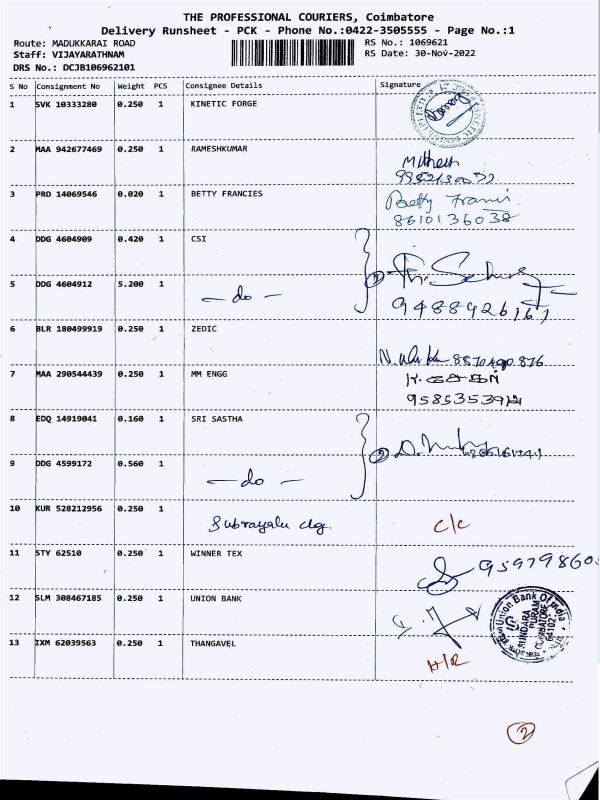 THE PROFESSIONAL COURIERS, Coimbatore
Delivery Runsheet - PCK - Phone No.:0422-3505555 - Page No.:1
Route: MADUKKARAI ROAD
Staff: VIJAYARATHNAM
DRS No.: DCJB106962101
RS No.: 1069621
RS Date: 30-Nov-2022
S No Consignment No Weight PCS Consignee Details Signature
1 SVK 10333280 0.250 1 KINETIC FORGE
2 MAA 942677469 0.250 1 RAMESHKUMAR
3 PRO 14069546 0.020 1 BETTY FRANCIES Betty
8610136038
4 DDG 4604909 0.420 1 CSI
5 DDG 4604912 5.200 1 - do -
9488926167
6 BLR 180499919 0.250 1 ZEDIC
7 MAA 290544439 0.250 1 MM ENGG
8 EDQ 14919041 0.160 1 SRI SASTHA
9 DDG 4599172 0.560 1 - do -
10 KUR 528212956 0.250 1 Subrayalu clg. C/C
11 STY 62510 0.250 1 WINNER TEX 95979860
12 SLM 308467185 0.250 1 UNION BANK
Union Bank Of India
SUNDARA
PURAM
COIMBATORE
13 IXM 62039563 0.250 1 THANGAVEL H/R
2